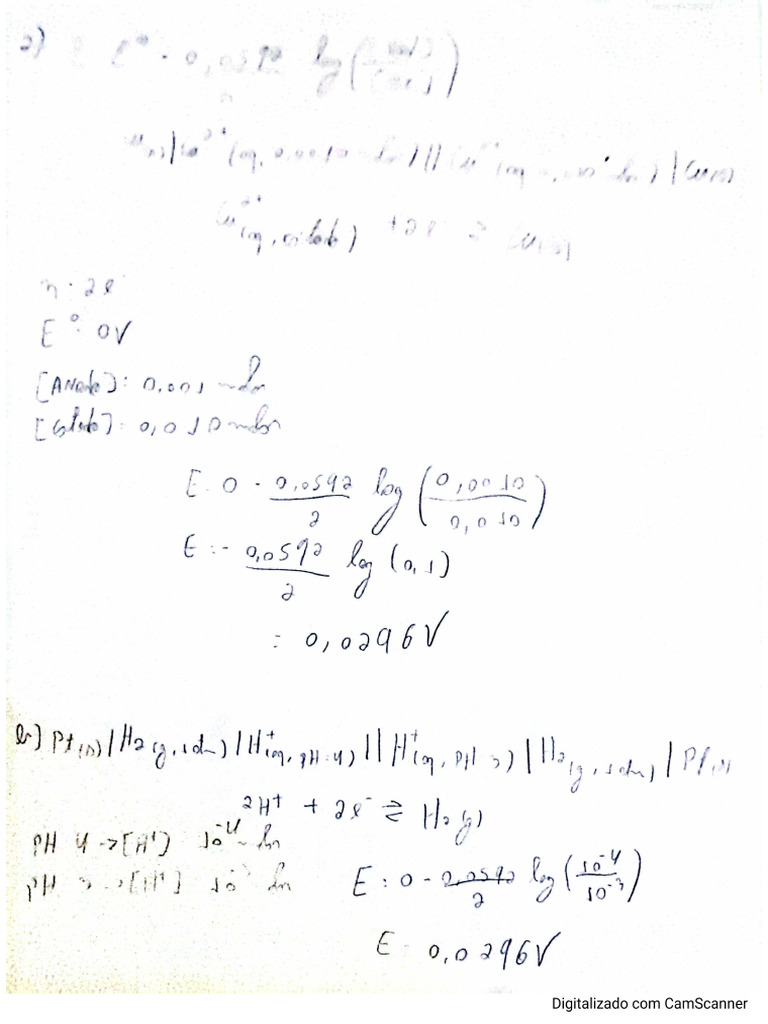 a) E E° - 0,0592 log([
n
|Cu²⁺(aq, 0,0010 || Cu²⁺(aq | Cu(s)
Cu²⁺(aq, ) + 2e⁻ ⇌ Cu(s)
n: 2e⁻
E°: 0V
[Anodo]: 0,001 mol
[Catodo]: 0,010 mol
E: 0 - 0,0592/2 log (0,0010/0,010)
E: - 0,0592/2 log (0,1)
: 0,0296V
b) Pt(s)|H2(g, 1atm)|H⁺(aq, pH:4)||H⁺(aq, pH 3)|H2(g, 1atm)|Pt(s)
2H⁺ + 2e⁻ ⇌ H2(g)
pH 4 -> [H⁺] 10⁻⁴
pH -> [H⁺] 10
E: 0 - 0,0592/2 log (10⁻⁴/10⁻³)
E: 0,0296V
Digitalizado com CamScanner